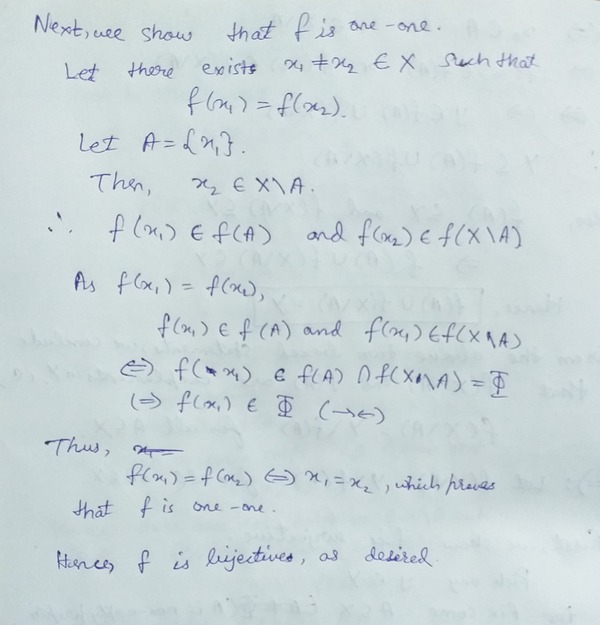 Next, we show that f is one-one.
Let there exists x₁ ≠ x₂ ∈ X such that
f(x₁) = f(x₂).
Let A = {x₁}.
Then, x₂ ∈ X\A.
∴ f(x₁) ∈ f(A) and f(x₂) ∈ f(X\A)
As f(x₁) = f(x₂),
f(x₁) ∈ f(A) and f(x₁) ∈ f(X\A)
⇔ f(x₁) ∈ f(A) ∩ f(X\A) = Φ
⇔ f(x₁) ∈ Φ (→←)
Thus,
f(x₁) = f(x₂) ⇔ x₁ = x₂, which proves
that f is one-one.
Hence, f is bijective, as desired.